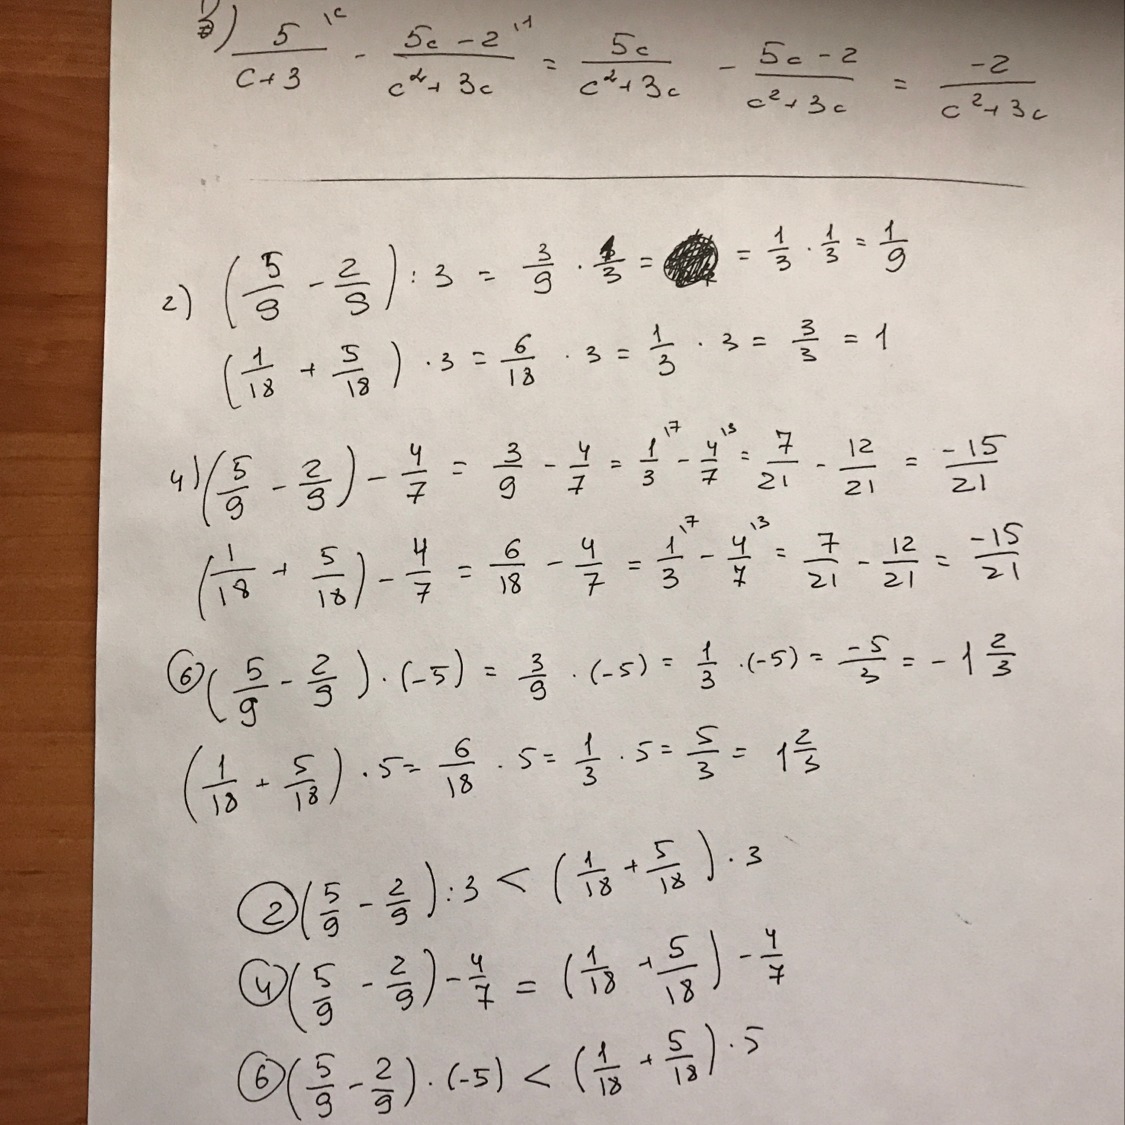 3) 5/(c+3) \c - (5c-2)/(c²+3c) \1 = 5c/(c²+3c) - (5c-2)/(c²+3c) = -2/(c²+3c)
2) (5/9 - 2/9) : 3 = 3/9 · 1/3 = = 1/3 · 1/3 = 1/9
(1/18 + 5/18) · 3 = 6/18 · 3 = 1/3 · 3 = 3/3 = 1
4) (5/9 - 2/9) - 4/7 = 3/9 - 4/7 = 1/3 \7 - 4/7 \3 = 7/21 - 12/21 = -15/21
(1/18 + 5/18) - 4/7 = 6/18 - 4/7 = 1/3 \7 - 4/7 \3 = 7/21 - 12/21 = -15/21
6 (5/9 - 2/9) · (-5) = 3/9 · (-5) = 1/3 · (-5) = -5/3 = -1 2/3
(1/18 + 5/18) · 5 = 6/18 · 5 = 1/3 · 5 = 5/3 = 1 2/3
2 (5/9 - 2/9) : 3 < (1/18 + 5/18) · 3
4 (5/9 - 2/9) - 4/7 = (1/18 + 5/18) - 4/7
6 (5/9 - 2/9) · (-5) < (1/18 + 5/18) · 5